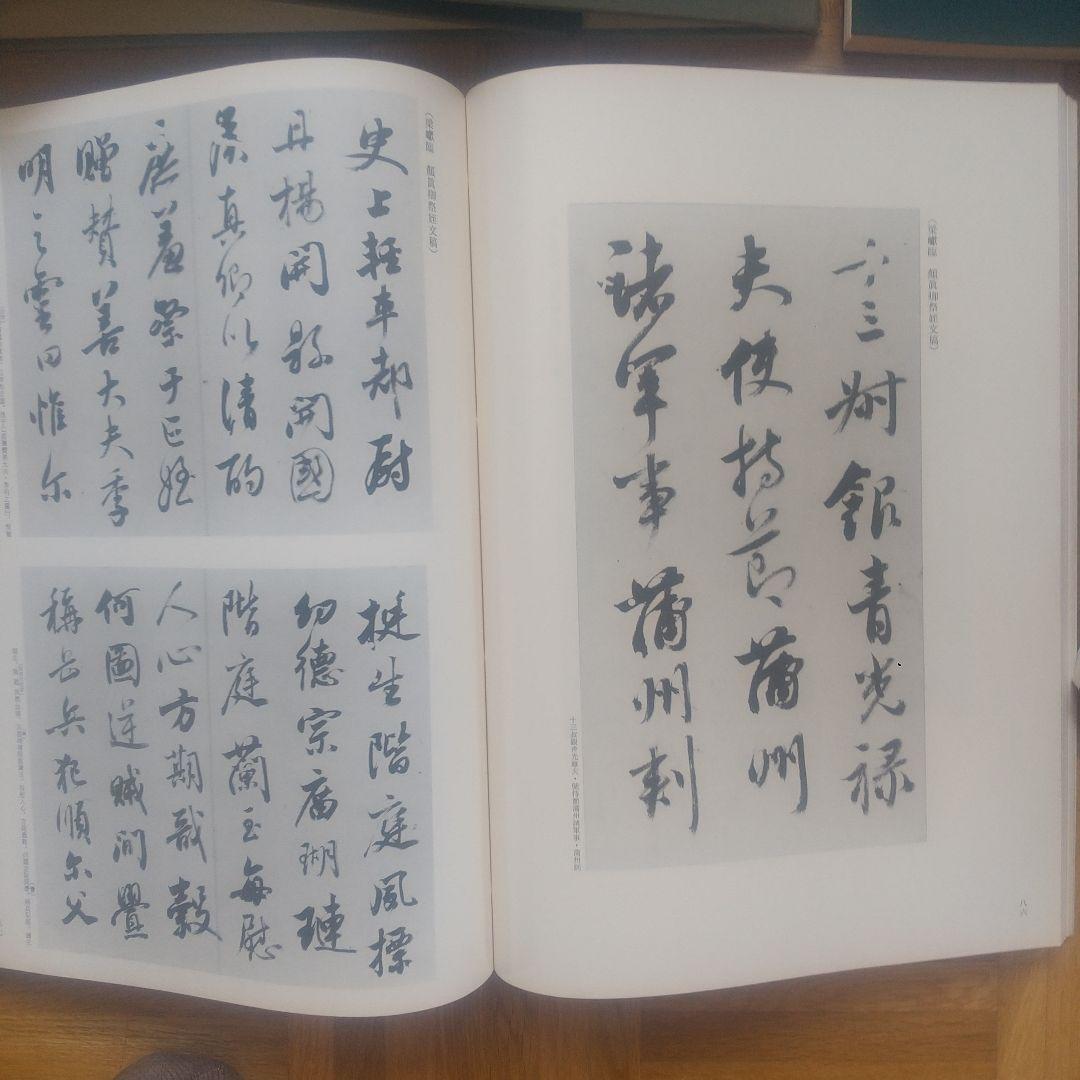 (梁巘臨 顏真卿祭姪文稿)
十三叔銀青光祿
夫使持節蒲州
諸軍事蒲州刺
八六
(梁巘臨 顏真卿祭姪文稿)
史上輕車都尉
丹楊開縣開國
侯真卿以清酌
庶羞祭于亡姪
贈贊善大夫季
明之靈曰惟尔
挺生階庭風標
幼德宗廟瑚璉
階庭蘭玉每慰
人心方期戩穀
何圖逆賊間釁
稱兵犯順尔父